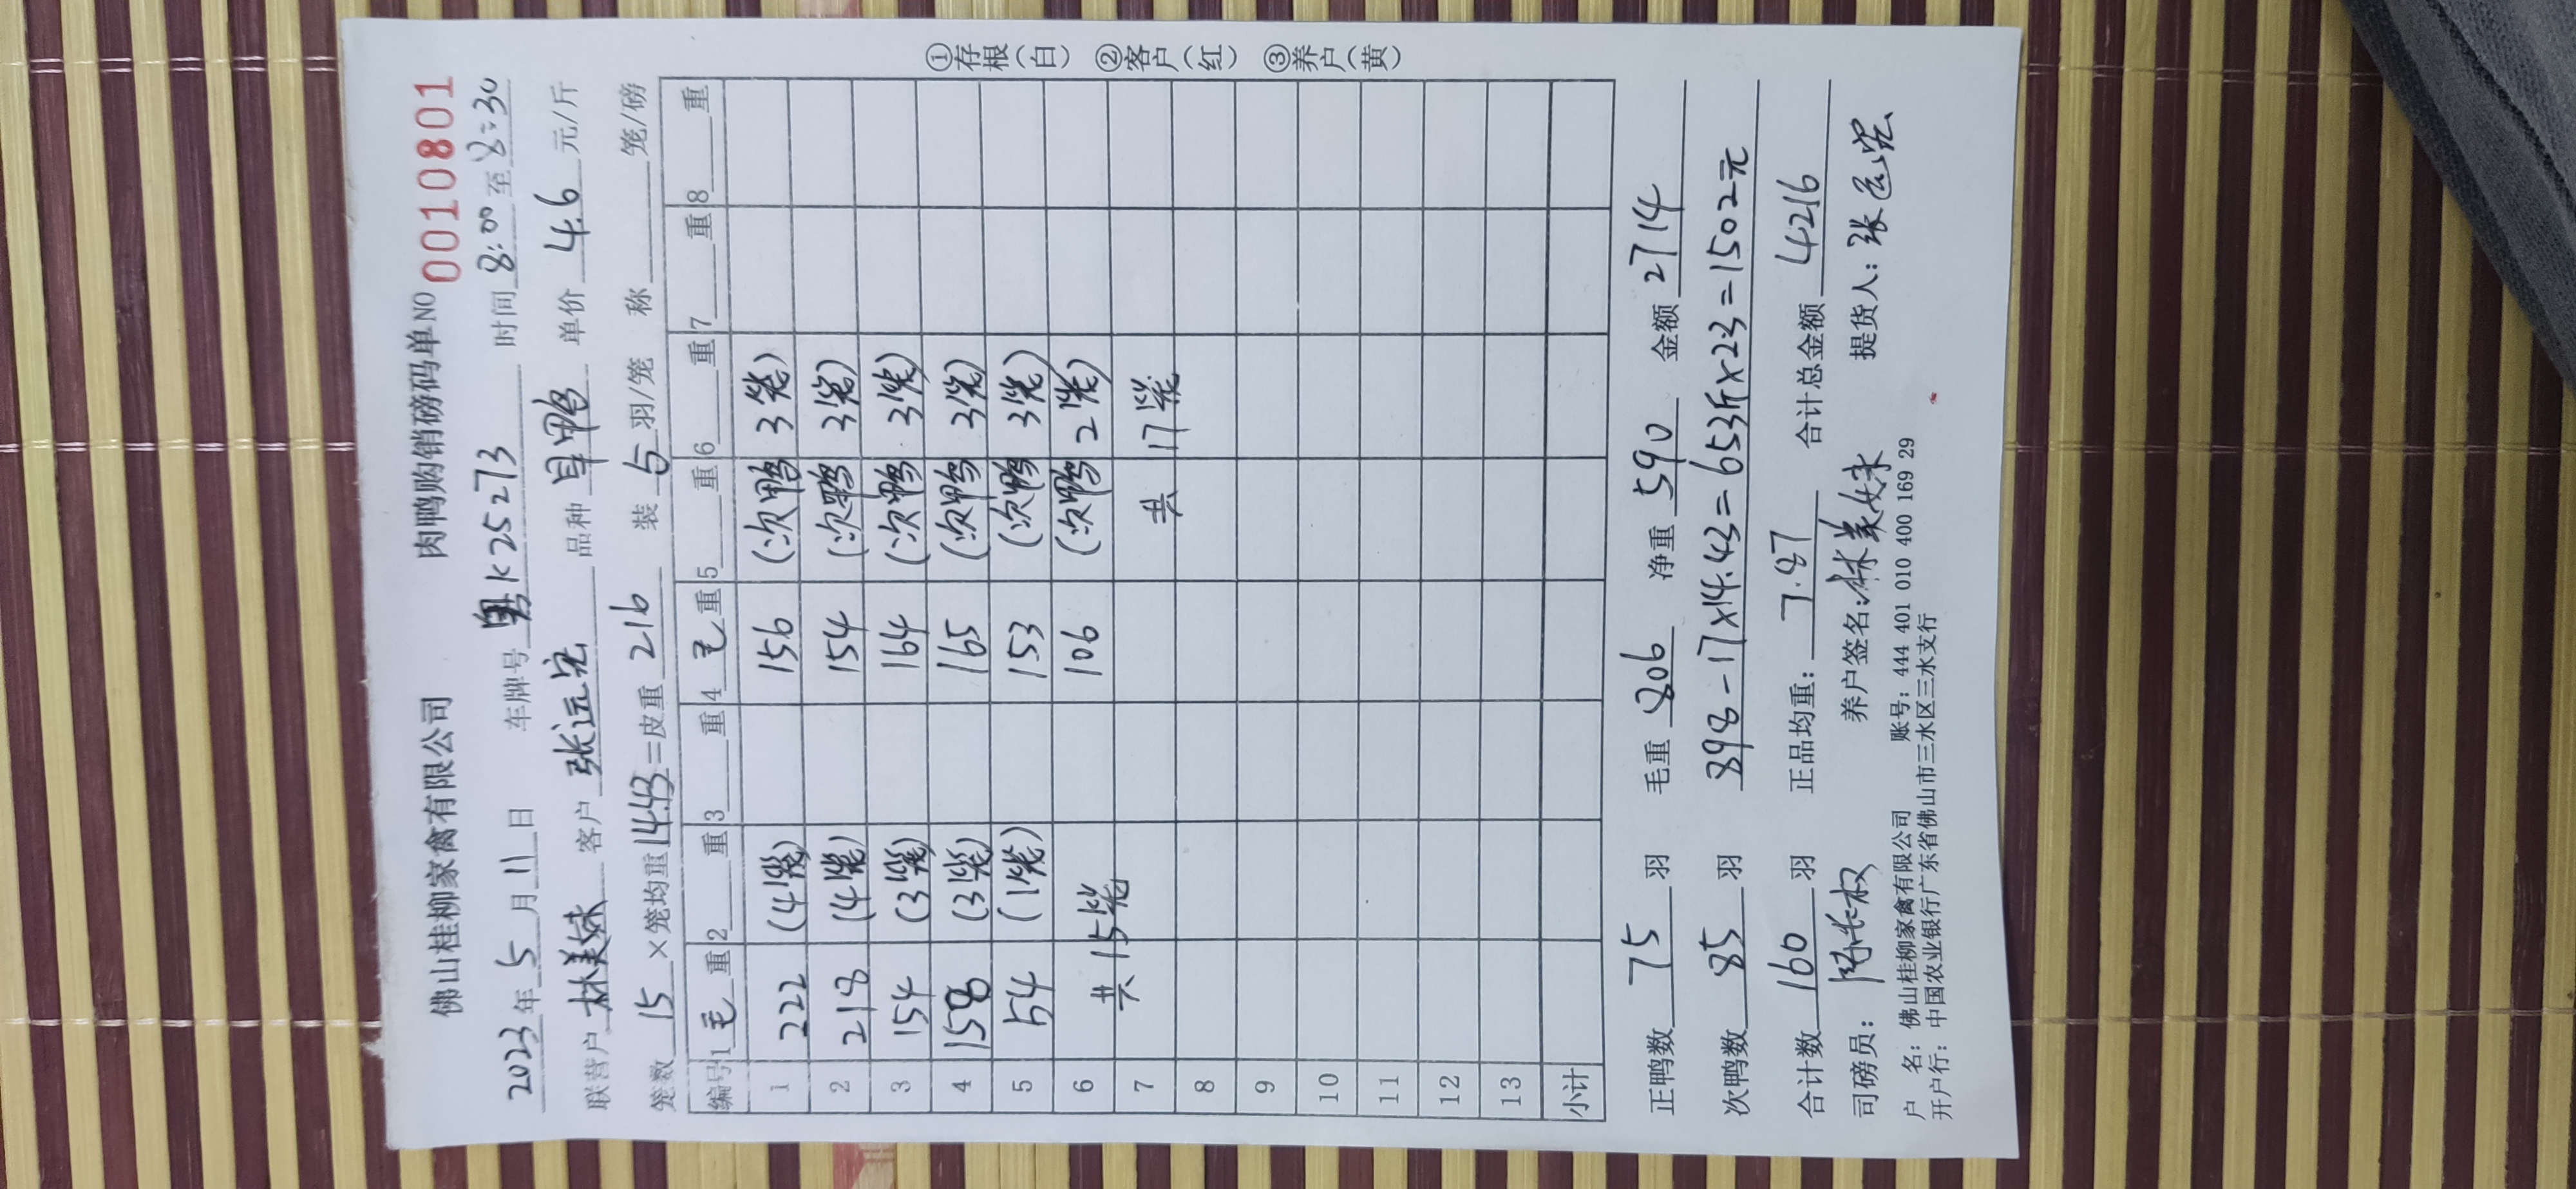 佛山桂柳家禽有限公司 肉鸭购销磅码单 NO 0010801
2023年5月11日 车牌号 粤K25273 时间 8:00 至 8:30
联营户 林美妹 客户 张远宏 品种 品种 单价 4.6 元/斤
笼数 15 ×笼均重 14.43 =皮重 216 装 5 羽/笼 称 笼/磅
编号 1 毛 重 2 重 3 重 4 毛 重 5 重 6 重 7 重 8 重
1 222 (4笼) 156 (次鸭 3笼)
2 218 (4笼) 154 (次鸭 3笼)
3 154 (3笼) 164 (次鸭 3笼)
4 158 (3笼) 165 (次鸭 3笼)
5 54 (1笼) 153 (次鸭 3笼)
6 共15笼 106 (次鸭 2笼)
7 共 17笼
8
9
10
11
12
13
小计
正鸭数 75 羽 毛重 806 净重 590 金额 2714
次鸭数 85 羽 898-17×14.43=653斤×2.3=1502元
合计数 160 羽 正品均重: 7.87 合计总金额 4216
司磅员: 养户签名: 林美妹 提货人: 张
户 名: 佛山桂柳家禽有限公司 账号: 444 401 010 400 169 29
开户行: 中国农业银行广东省佛山市三水区三水支行
①存根(白) ②客户(红) ③养户(黄)